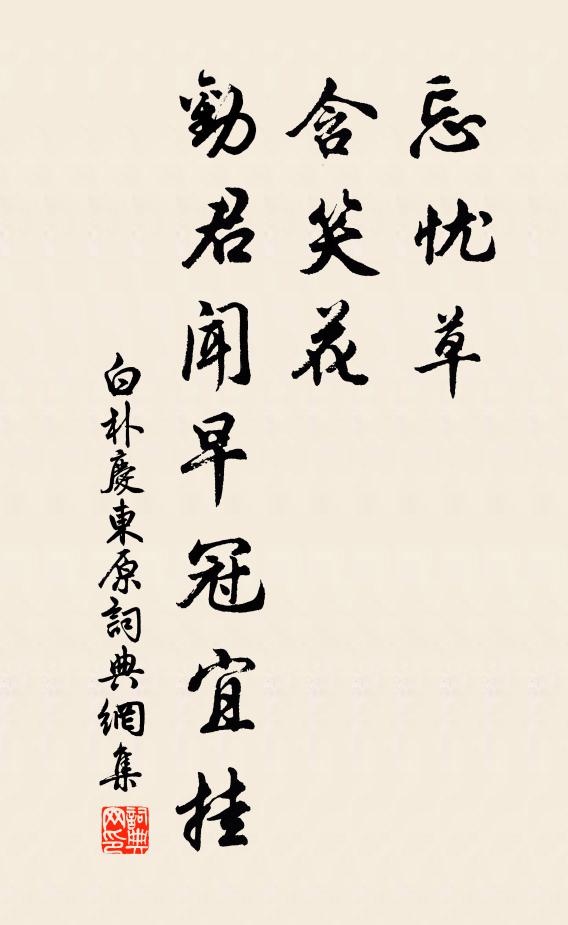 忘忧草
含笑花
勸君闻早冠宜挂
白朴慶東原詞典網集
詞典網印